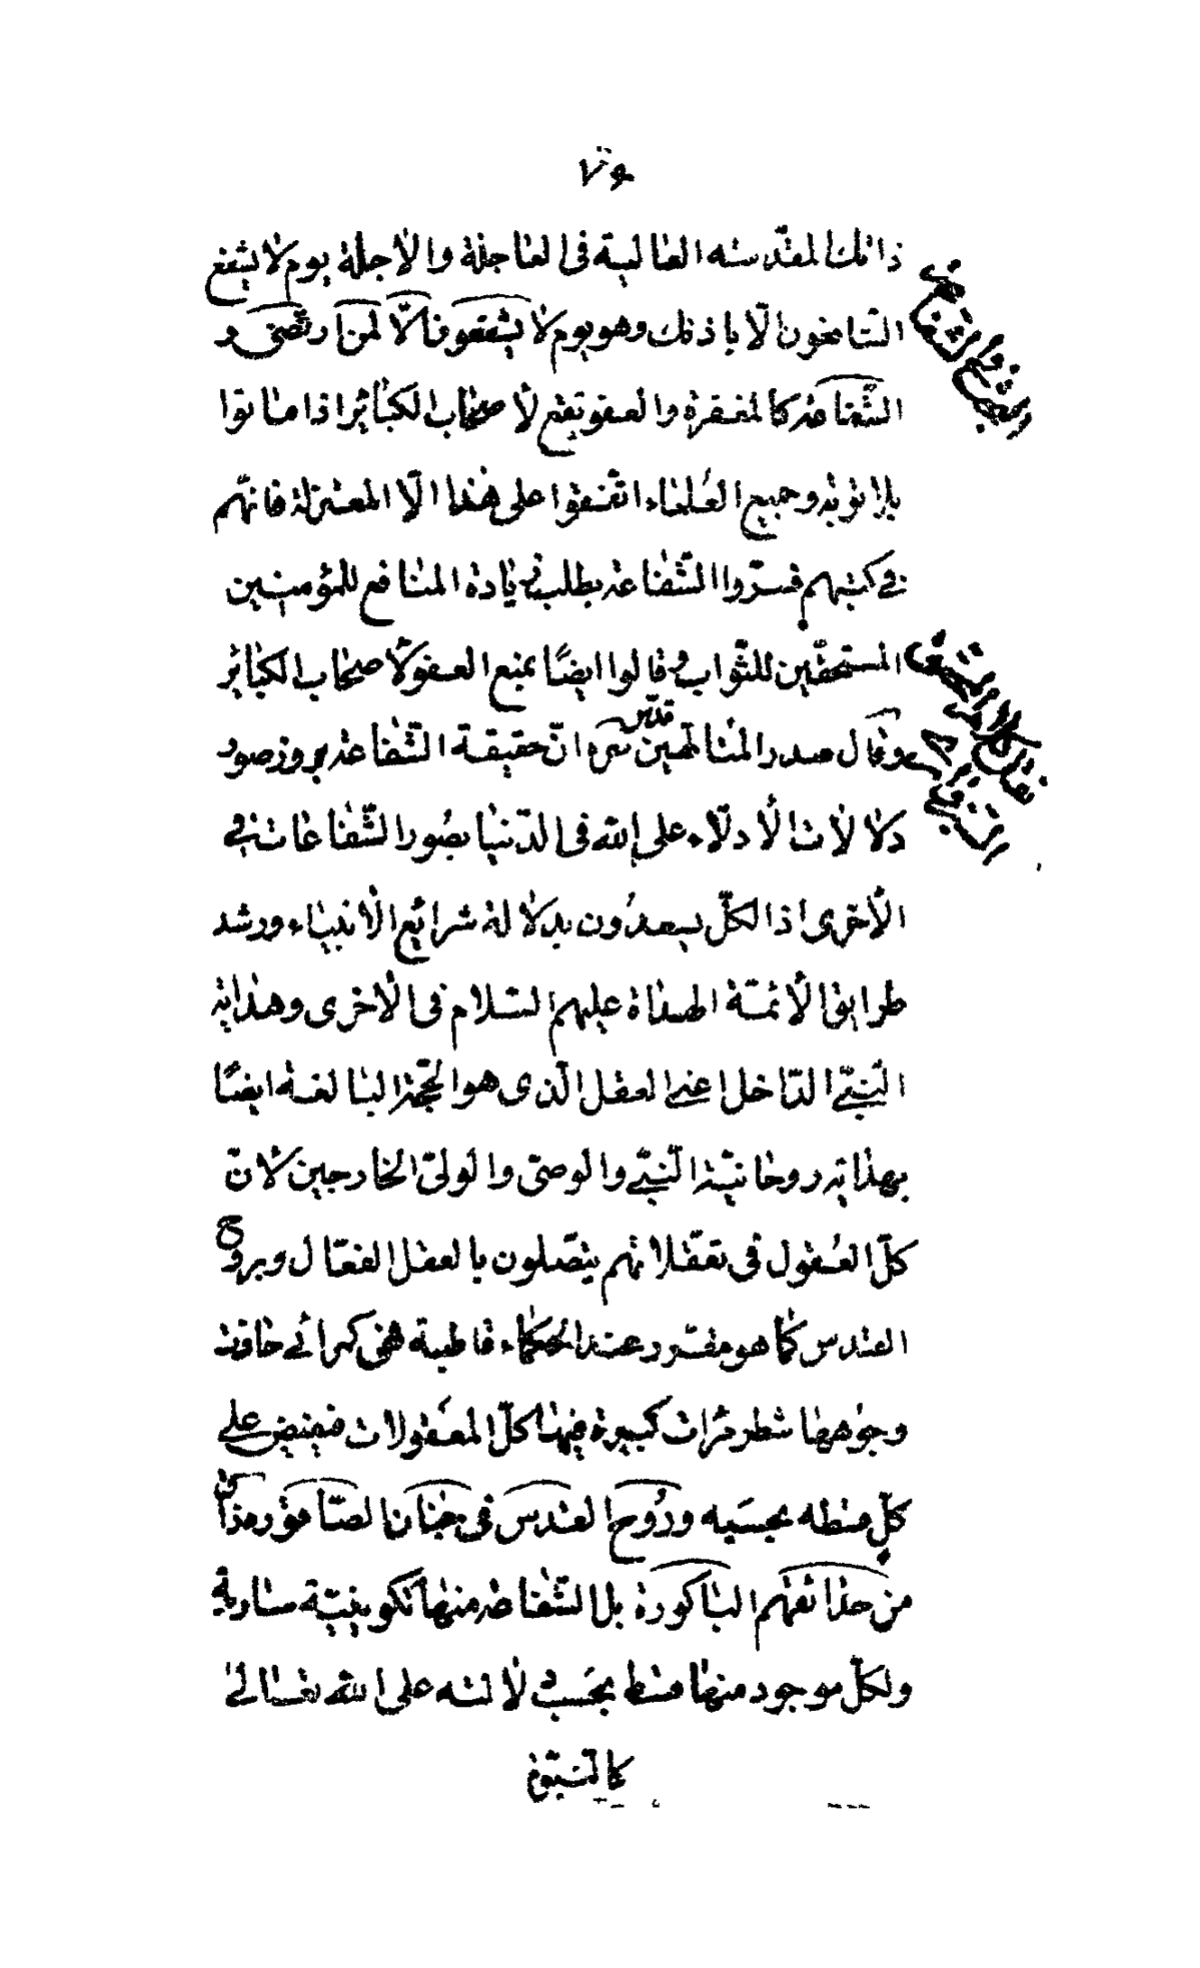 ذاتك المقدسه العالية فى العاجلة والاجلة يوم لا يشفع
الشافعون الّا باذنك وهو يوم لا يشفعون الّا لمن ارتضى و
الشّفاعة كالمغفرة والعفو تقع لأصحاب الكبائر اذا ماتوا
بلا توبة وجميع العُلماء اتّفقوا على هذا الّا المعتزلة فانّهم
فى كتبهم فسّروا الشّفاعة بطلب زيادة المنافع للمؤمنين
المستحقّين للثّواب وقالوا ايضًا بمنع العفو لأصحاب الكبائر
وقال صدر المتالّهين قدّس سره انّ حقيقة الشّفاعة بروز صور
دلالات الأدلّاء على الله فى الدّنيا بصُور الشّفاعات فى
الأخرى اذ الكلّ يسعدُون بدلالة شرائع الأنبياء ورشد
طرايق الأئمّة الهداة عليهم السّلام فى الأخرى وهداية
النّبىّ الدّاخل اعنى العقل الّذى هو الحجّة البالغة ايضًا
بهداية روحانيّة النّبىّ والوصىّ والولىّ الخارجين لأنّ
كلّ العُقول فى تعقّلاتهم يتّصلون بالعقل الفعّال وبروح
القدس كما هو مقرّر عند الحكماء قاطبة فهى كمرائى حاذت
وجوهها شطر مرات كبيرة فيها كلّ المعقولات فيفيض على
كلّ قسطه بحسَبه ورُوح القدس فى جنان الصّاقورة ذاق
من حدائقهم الباكورة بل الشّفاعة منها تكوينيّة سارية
ولكلّ موجود منها قسط بحسب دلالته على الله تعالى
كالنّبوّة